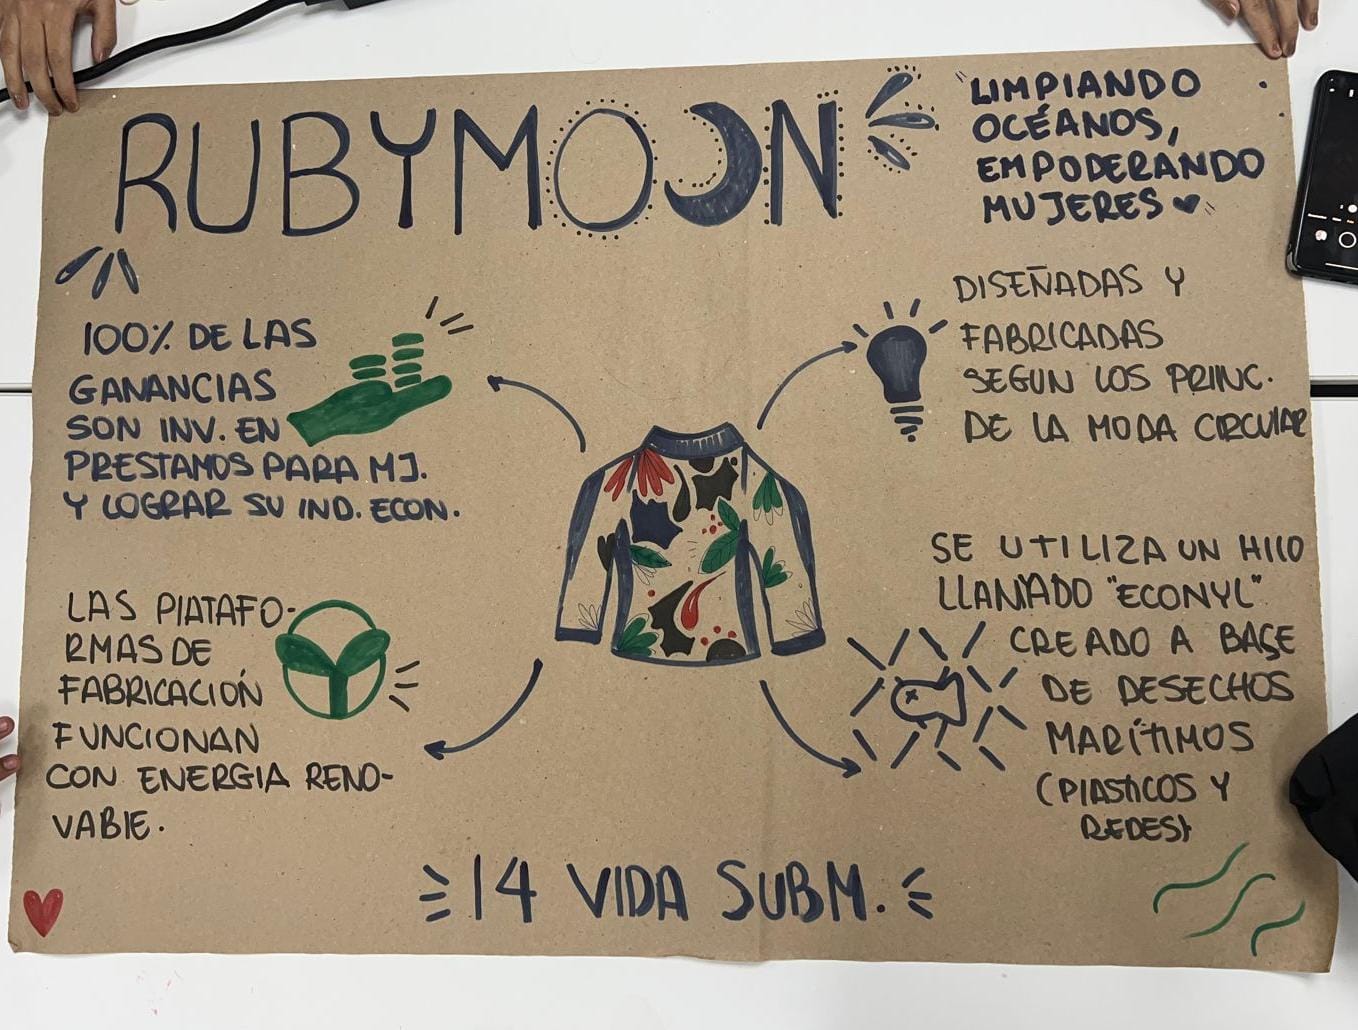 RUBYMOON
"LIMPIANDO
OCÉANOS,
EMPODERANDO
MUJERES ♥"
100% DE LAS
GANANCIAS
SON INV. EN
PRESTAMOS PARA MJ.
Y LOGRAR SU IND. ECON.
DISEÑADAS Y
FABRICADAS
SEGUN LOS PRINC.
DE LA MODA CIRCULAR
LAS PLATAFO-
RMAS DE
FABRICACIÓN
FUNCIONAN
CON ENERGIA RENO-
VABLE.
SE UTILIZA UN HILO
LLAMADO "ECONYL"
CREADO A BASE
DE DESECHOS
MARÍTIMOS
(PLASTICOS Y
REDES)
14 VIDA SUBM.